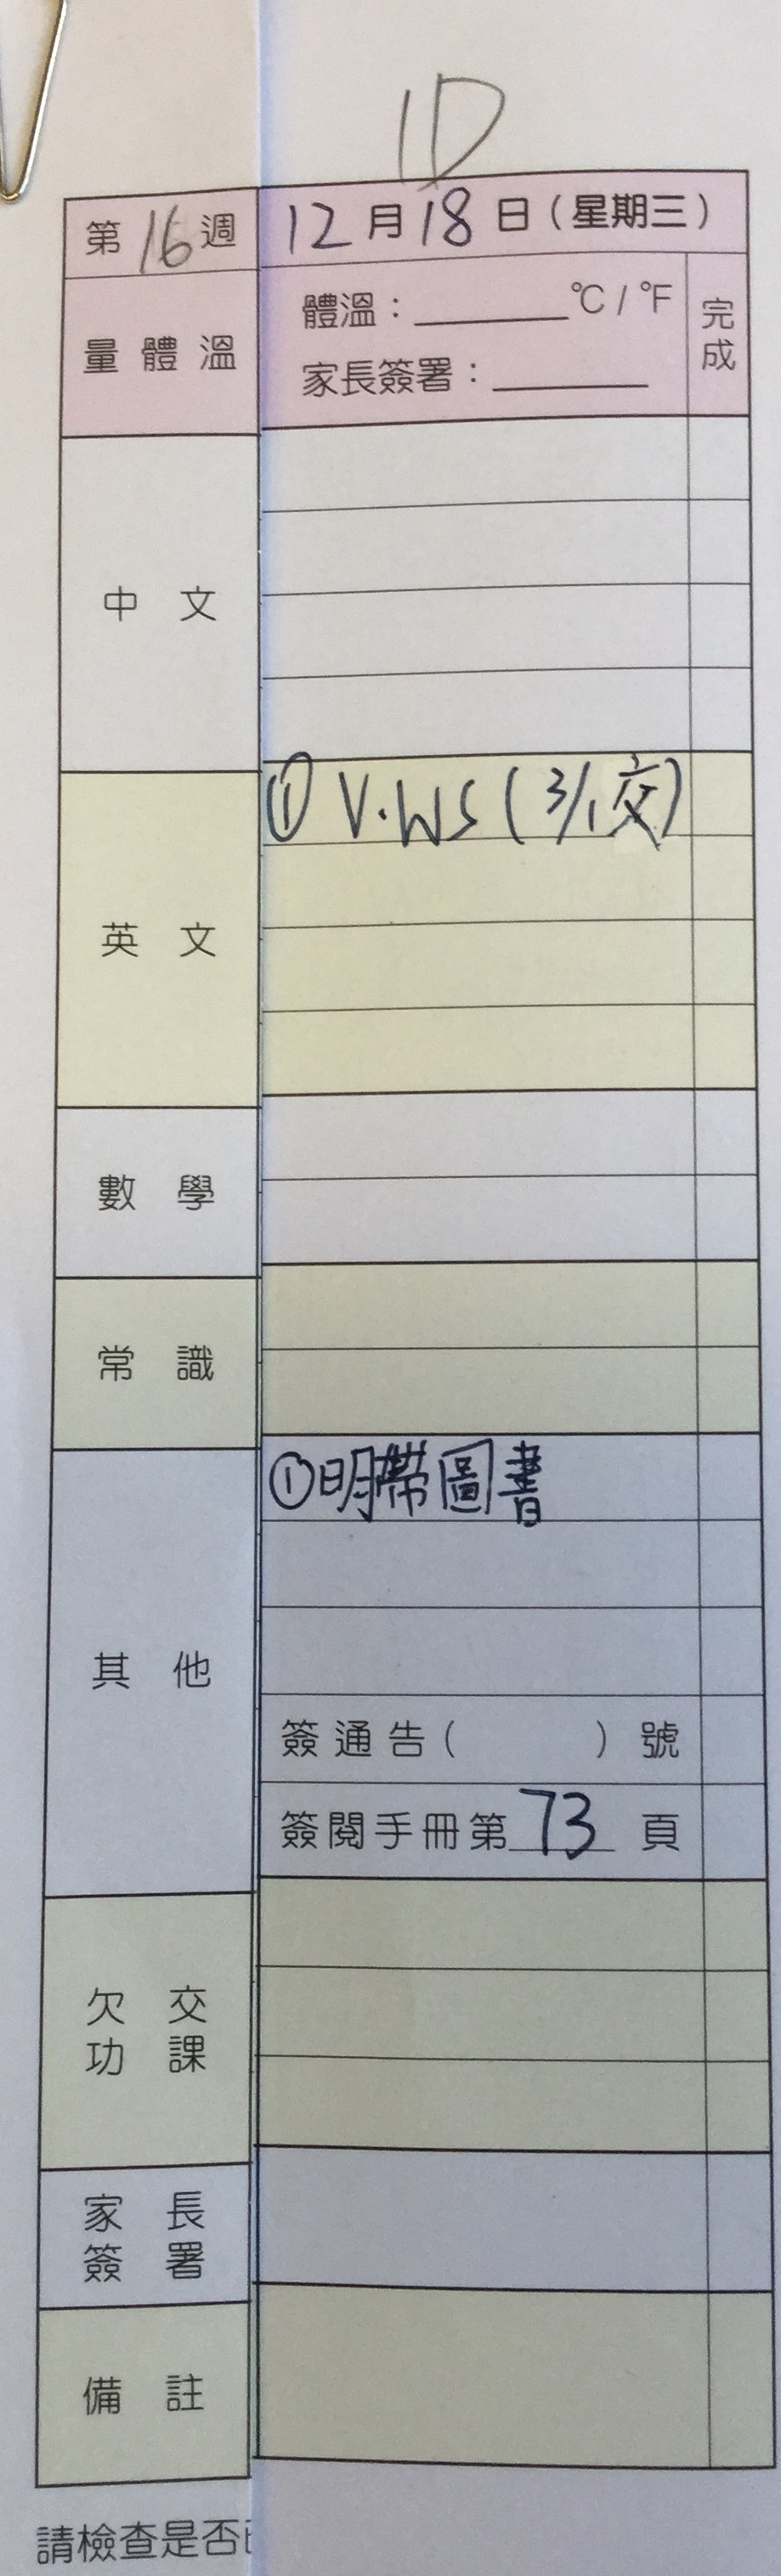 1D
第16週 12月18日（星期三）
量體溫 體溫：______°C / °F 完成
家長簽署：______
中文
英文 ① V.WS (3/1交)
數學
常識
其他 ①明帶圖書
簽通告（ ）號
簽閱手冊第73頁
欠交
功課
家長
簽署
備註
請檢查是否